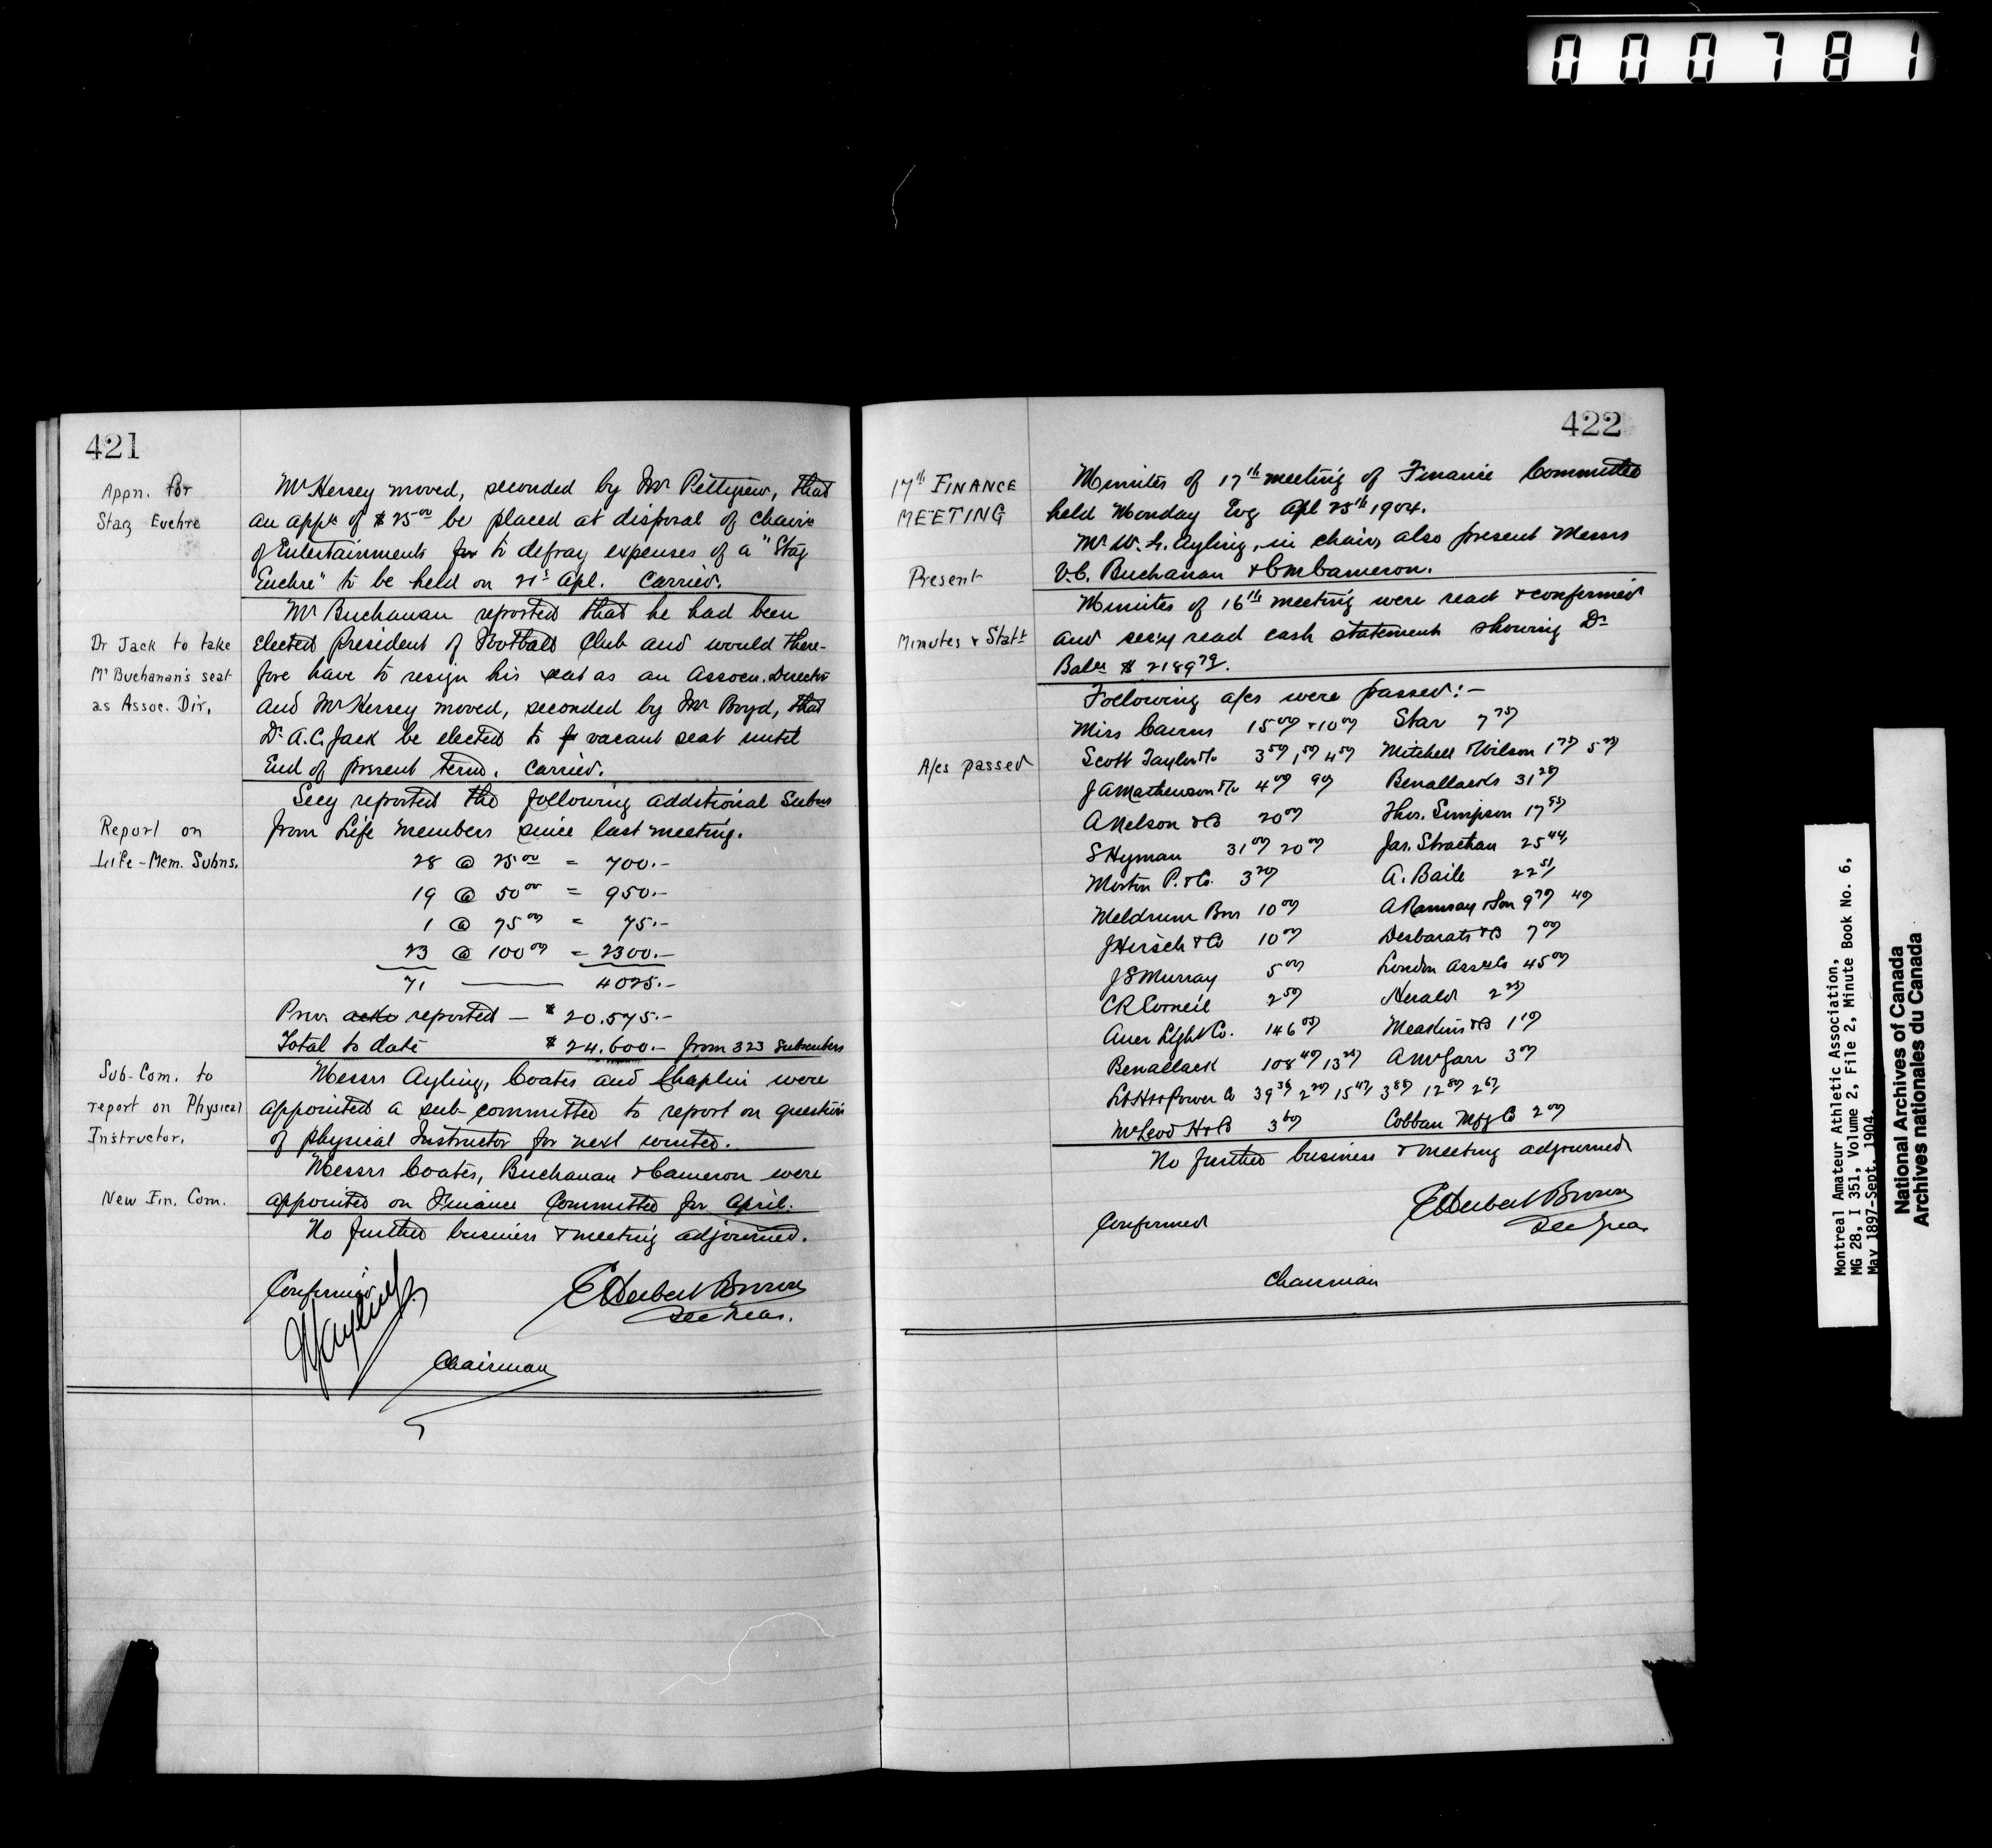 000781
421
Appn. for
Stag Euchre
Mr Hersey moved, seconded by Mr Pettigrew, that
an appn of $25.00 be placed at disposal of chairn
of Entertainments for to defray expenses of a "Stag
Euchre" to be held on 21st Apl. Carried.
Mr Buchanan reported that he had been
Dr Jack to take
Mr Buchanan's seat
as Assoc. Dir.
elected president of Football Club and would there-
fore have to resign his seat as an Assocn. Director
and Mr Hersey moved, seconded by Mr Boyd, that
Dr A.C. Jack be elected to vacant seat until
End of present term. Carried.
Report on
Life-Mem. Subns.
Secy reported the following additional Subns
from Life members since last meeting.
28 @ 25 00 = 700.-
19 @ 50 00 = 950.-
1 @ 75 00 = 75.-
23 @ 100 00 = 2300.-
71 4025.-
Prev. reported - $20.575.-
Total to date $24.600.- from 323 Subscribers
Sub-Com. to
report on Physical
Instructor.
Messrs Ayling, Coates and Chaplin were
appointed a sub-committee to report on question
of physical Instructor for next winter.
New Fin. Com.
Messrs Coates, Buchanan & Cameron were
appointed on Finance Committee for April.
No further business & meeting adjourned.
Confirmed
E Herbert Brown
Sec Treas.
Chairman
422
17th FINANCE
MEETING
Minutes of 17th meeting of Finance Committee
held Monday Evg Apl 25th 1904.
Present
Mr W. L. Ayling, in chair, also present Messrs
V.C. Buchanan & C M Cameron.
Minutes & Statt
Minutes of 16th meeting were read & confirmed
and secy read cash statement showing Dr
Balce $2189 79.
A/cs passed
Following a/cs were passed:-
Miss Cairns 15 00 + 10 00 Star 7 75
Scott Taylor & Co 3 50, 50 4 50 Mitchell & Wilson 1 75 5 25
J A Mathewson & Co 4 00 90 Benallacks 31 25
A Nelson & Co 20 00 Thos. Simpson 17 95
S Hyman 31 00 20 00 Jas. Strachan 25 44
Morton P. & Co. 3 20 A. Baile 22 51
Meldrum Bros 10 00 A Ramsay & Son 9 75 40
J Hirsch & Co 10 00 Desbarats & Co 7 00
J S Murray 5 00 London Assce Co 45 00
C R Corneil 2 50 Herald 2 25
Auer Light Co. 146 05 Meakins & Co 1 10
Benallack 108 40 13 25 A McGarr 3 00
L H & Power Co 39 36 2 20 15 47 3 88 12 80 2 67
McLeod H & Co 3 60 Cobban Mfg Co 2 00
No further business & meeting adjourned
Confirmed
E Herbert Brown
Sec Treas
Chairman
Montreal Amateur Athletic Association,
MG 28, I 351, Volume 2, File 2, Minute Book No. 6,
May 1897-Sept. 1904.
National Archives of Canada
Archives nationales du Canada